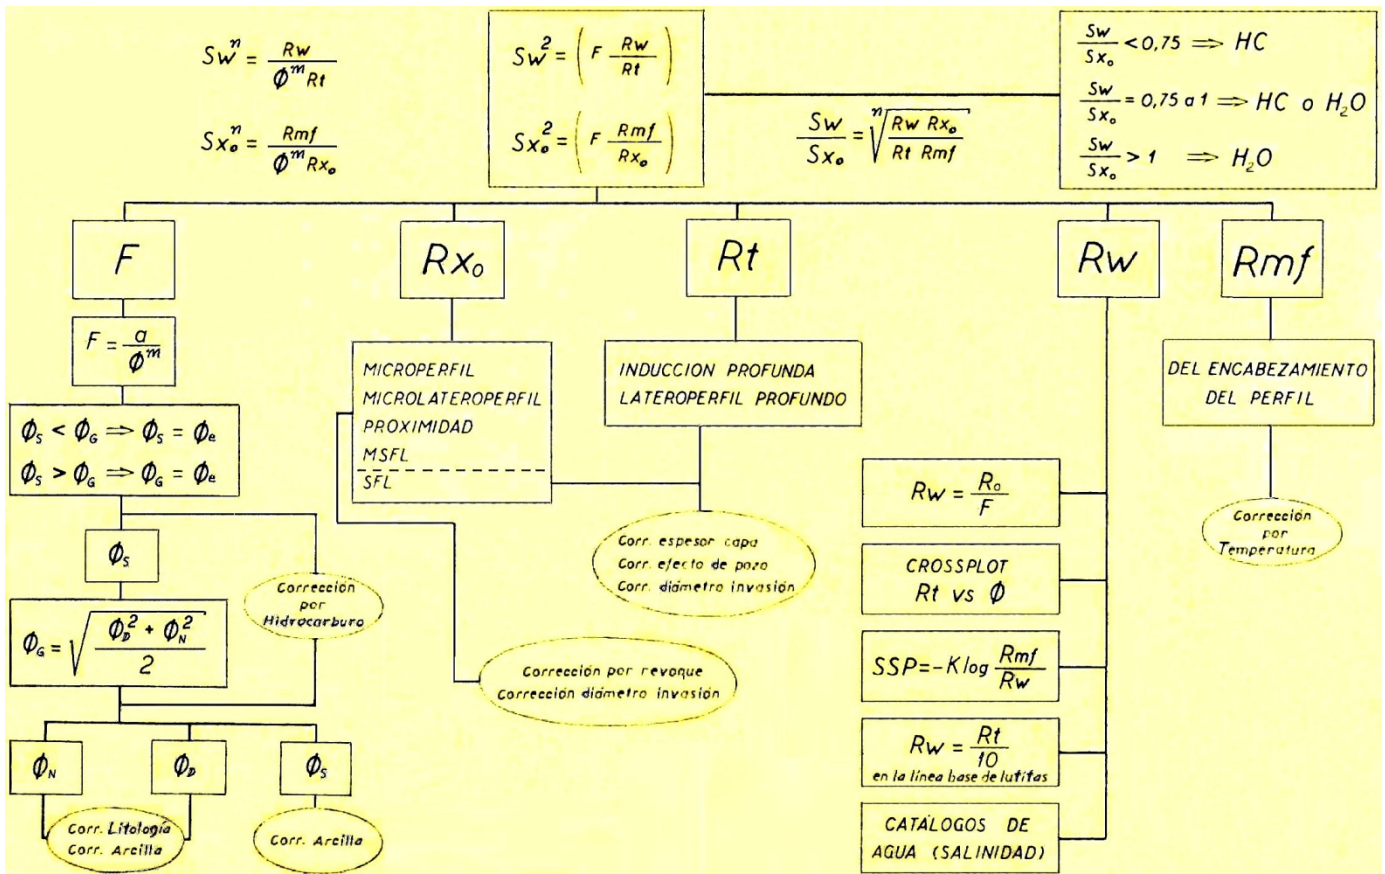 Sw^n = Rw / ϕ^m Rt
Sxo^n = Rmf / ϕ^m Rxo
Sw^2 = ( F Rw / Rt )
Sxo^2 = ( F Rmf / Rxo )
Sw / Sxo = ^n√( Rw Rxo / Rt Rmf )
Sw / Sxo < 0,75 ⟹ HC
Sw / Sxo = 0,75 a 1 ⟹ HC o H₂O
Sw / Sxo > 1 ⟹ H₂O
F
Rxo
Rt
Rw
Rmf
F = a / ϕ^m
ϕS < ϕG ⟹ ϕS = ϕe
ϕS > ϕG ⟹ ϕG = ϕe
ϕS
Corrección
por
Hidrocarburo
ϕG = √( ϕD^2 + ϕN^2 / 2 )
ϕN
ϕD
ϕS
Corr. Litología
Corr. Arcilla
Corr. Arcilla
MICROPERFIL
MICROLATEROPERFIL
PROXIMIDAD
MSFL
SFL
Corrección por revoque
Corrección diámetro invasión
INDUCCION PROFUNDA
LATEROPERFIL PROFUNDO
Corr. espesor capa
Corr. efecto de pozo
Corr. diámetro invasión
Rw = Ro / F
CROSSPLOT
Rt vs ϕ
SSP = -K log Rmf / Rw
Rw = Rt / 10
en la línea base de lutitas
CATÁLOGOS DE
AGUA (SALINIDAD)
DEL ENCABEZAMIENTO
DEL PERFIL
Corrección
por
Temperatura